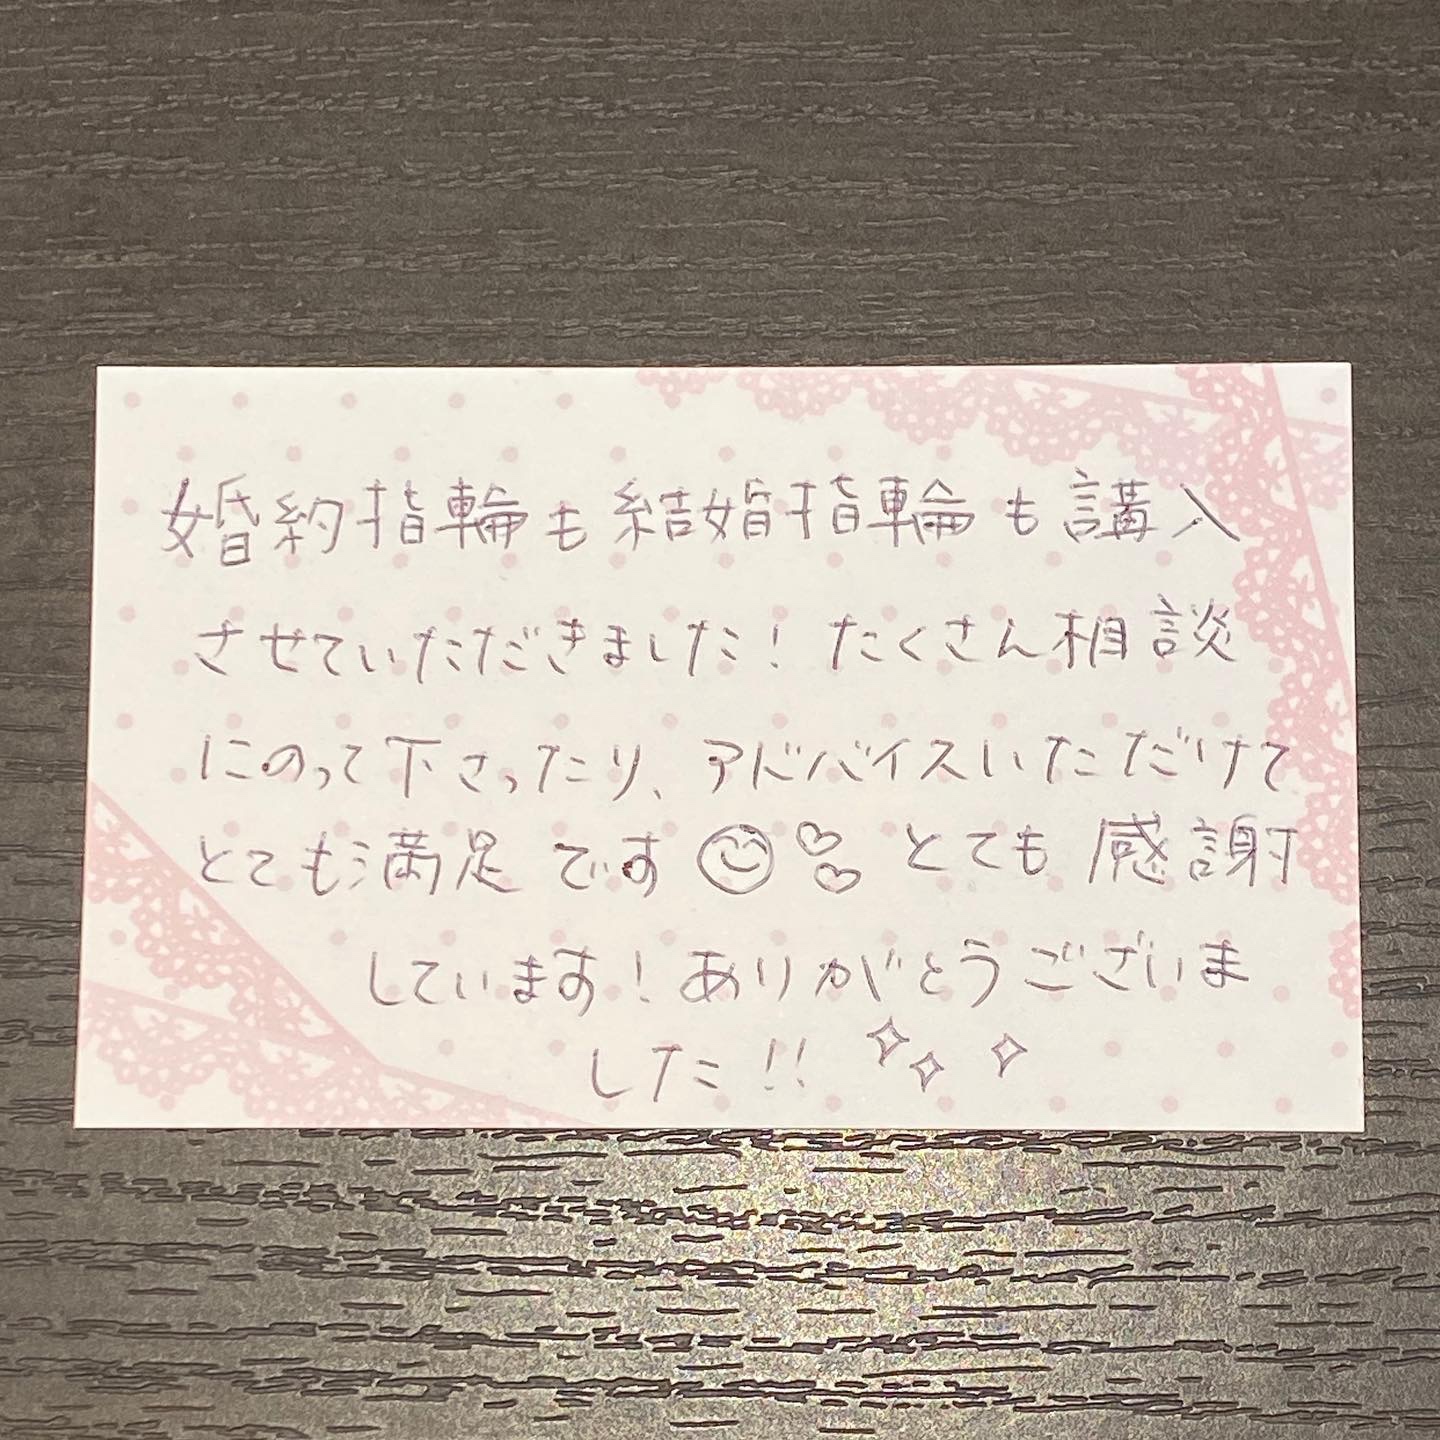 婚約指輪も結婚指輪も講入
させていただきました！たくさん相談
にのって下さったり、アドバイスいただけて
とても満足です とても感謝
しています！ありがとうございま
した!!